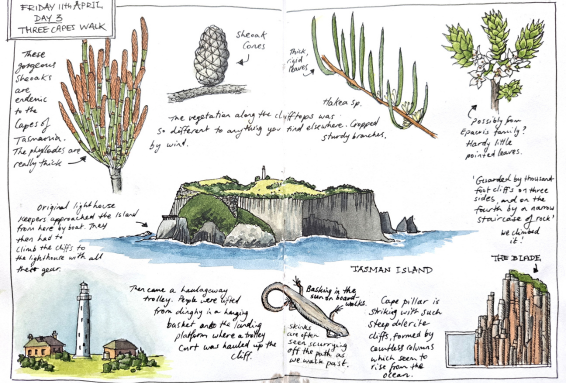 FRIDAY 11TH APRIL
DAY 3
THREE CAPES WALK
These
gorgeous
Sheoaks
are
endemic
to the
Capes of
Tasmania.
The phyllodes are
really thick
Sheoak
Cones
The vegetation along the clifftops was
so different to anything you find elsewhere. Cropped
by wind.
sturdy branches.
Thick,
rigid
leaves
Hakea sp.
Possibly from
Epacris family?
Hardy little
pointed leaves.
Original lighthouse
keepers approached the island
from here by boat. They
then had to
climb the cliffs to
the lighthouse with all
their gear.
TASMAN ISLAND
'Guarded by thousand
foot cliffs on three
sides, and on the
fourth by a narrow
staircase of rock'
we climbed
it!
THE BLADE
Then came a haulageway
trolley. People were lifted
from dinghy in a hanging
basket onto the landing
platform where a trolley
cart was hauled up the
cliff.
Basking in the
sun on board
walks.
Skinks
are often
seen scurrying
off the path as
we walk past.
Cape pillar is
striking with such
steep dolerite
cliffs, formed by
countless columns
which seem to
rise from the
ocean.